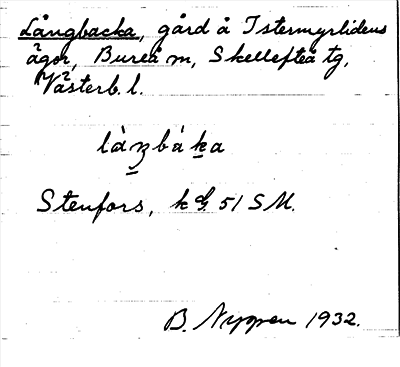 Långbacka, gård å Istermyrlidens
ägor, Bureå m, Skellefteå tg,
Västerb. l.
Stenfors, k 51 SM.
B. Nyppen 1932.